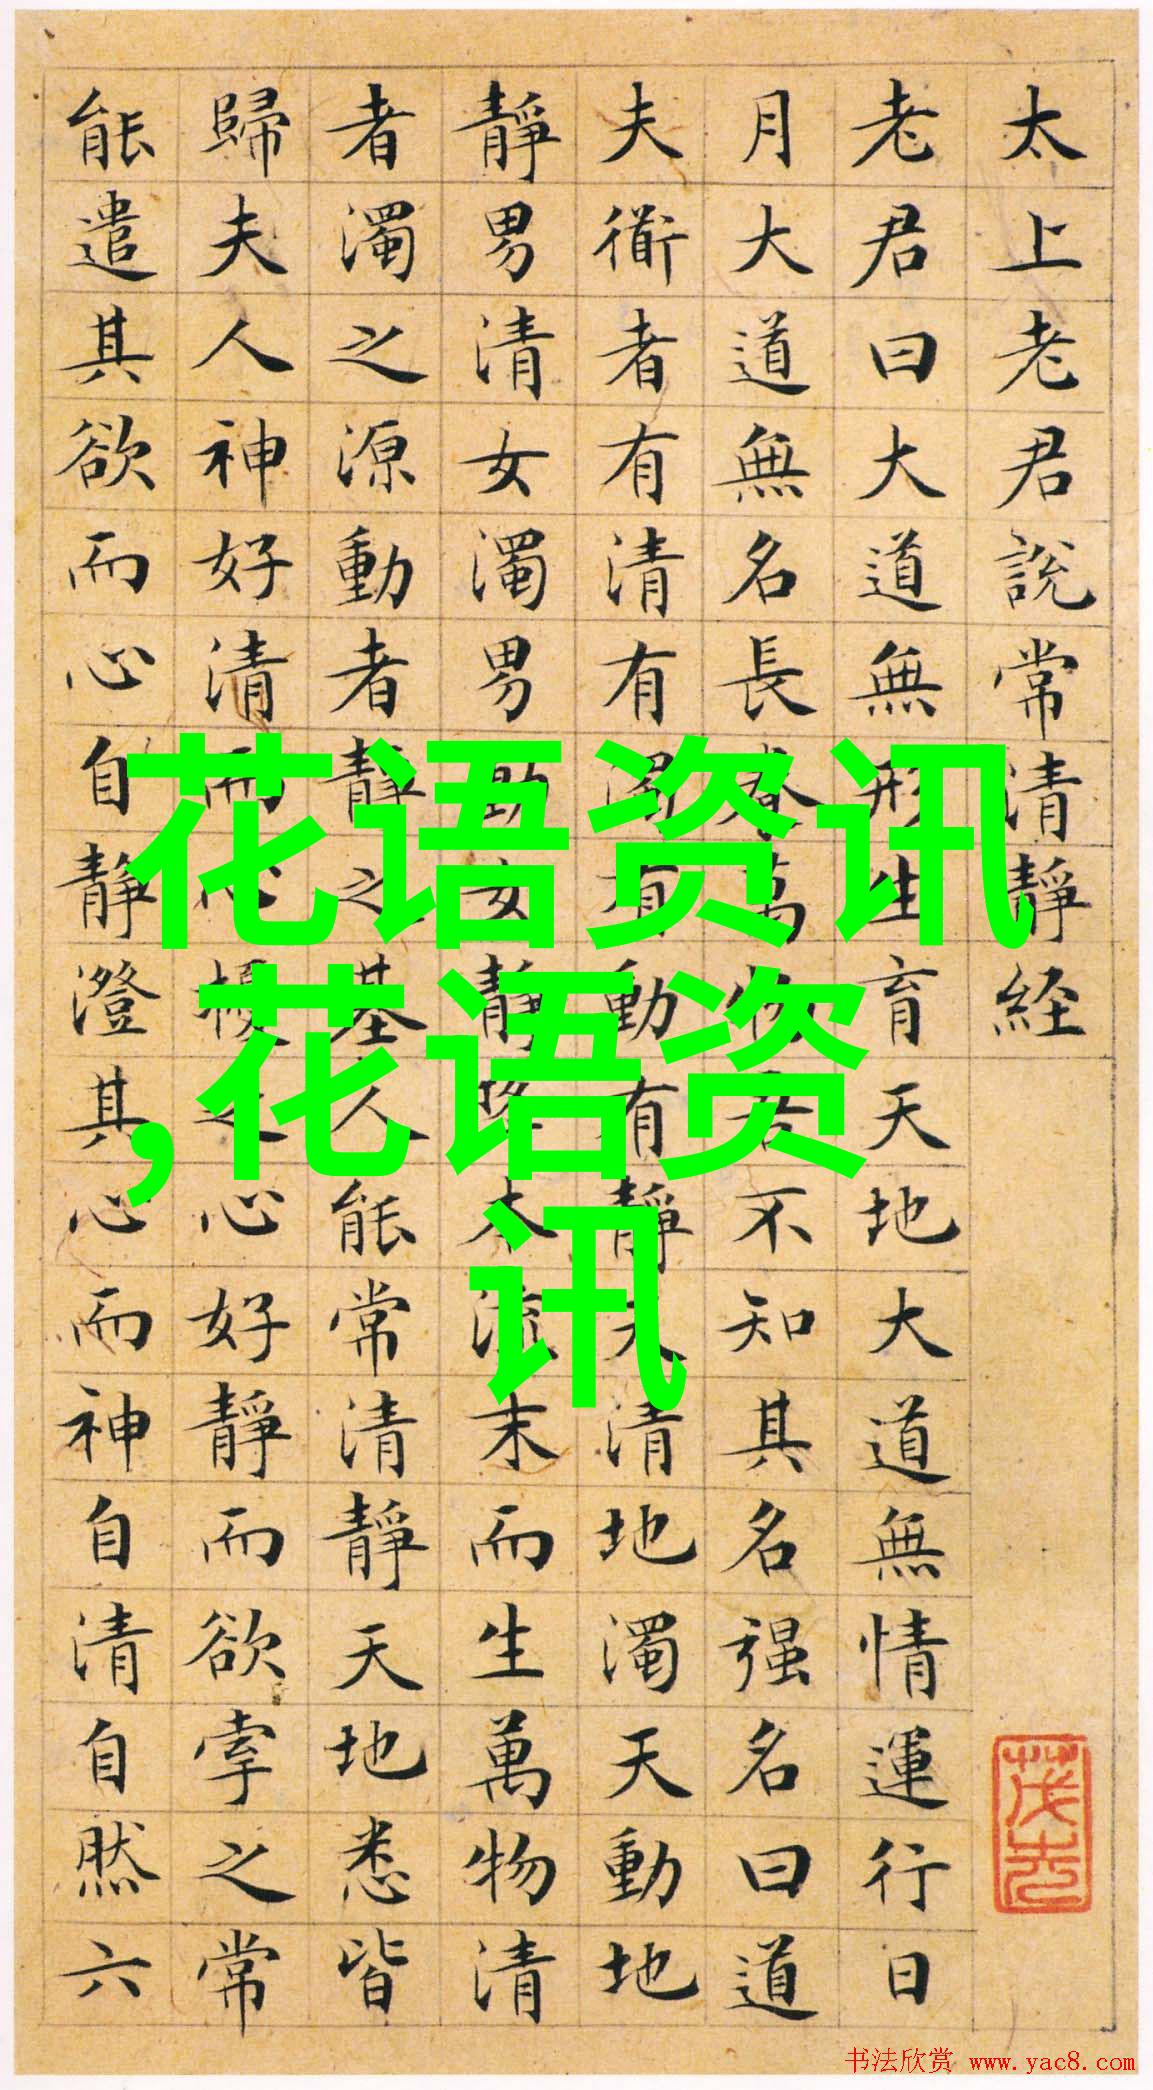 太上老君說常清靜経
老君曰大道無形生育天地大道無情運行日
月大道無名長養萬物吾不知其名强名曰道
夫衜者有清有濁有動有靜天清地濁天動地
靜男清女濁男動女靜降本流末而生萬物清
者濁之源動者靜之基人能常清靜天地悉皆
歸夫人神好清而心擾之心好靜而欲牽之常
能遣其欲而心自靜澄其心而神自清自然六
花语资讯
,花语资
讯
书法欣赏 www.yac8.com